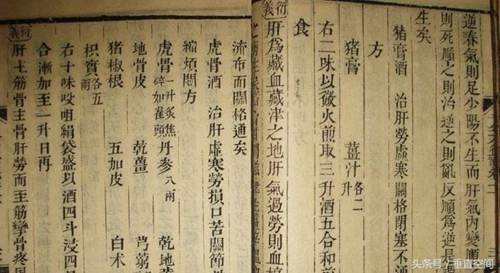 逆春氣則足少陽不生而肝氣內變順
則死順之則治逆之則亂反順為逆是
生矣
猪膏酒 治肝勞虛寒關格閉塞不通
方
猪膏 薑汁各二升
右二味以微火煎取三升酒五合和
食
衍義 肝為藏血藏津之地肝氣過勞則血
流布而關格通矣
虎骨酒 治肝虛寒勞損口苦關節
縮煩悶方
虎骨一升炙焦碎如雀頭 丹參八兩 乾地
地骨皮 乾薑 芎藭
猪椒根 五加皮 白术
枳實各五兩
右十味㕮咀絹袋盛以酒四斗浸四日
合漸加至一升日再
衍義 肝主筋骨主骨肝勞而主筋攣骨疼
头条号/垂直空间